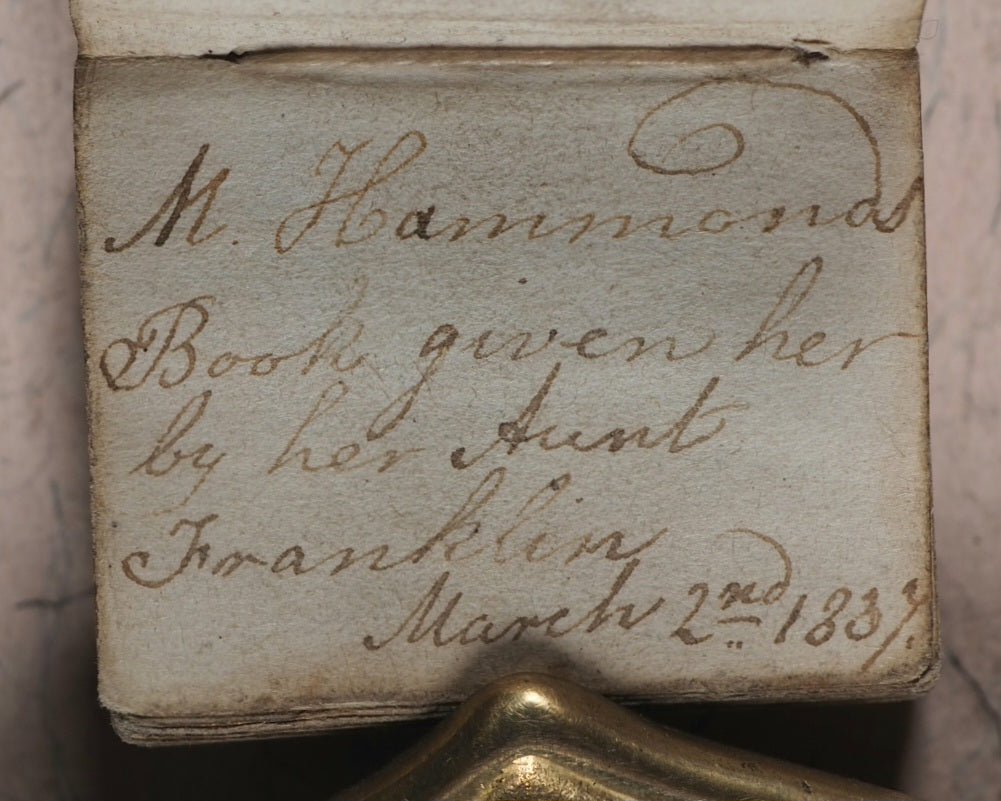 M. Hammonds
Book given her
by her Aunt
Franklin
March 2nd 1837.